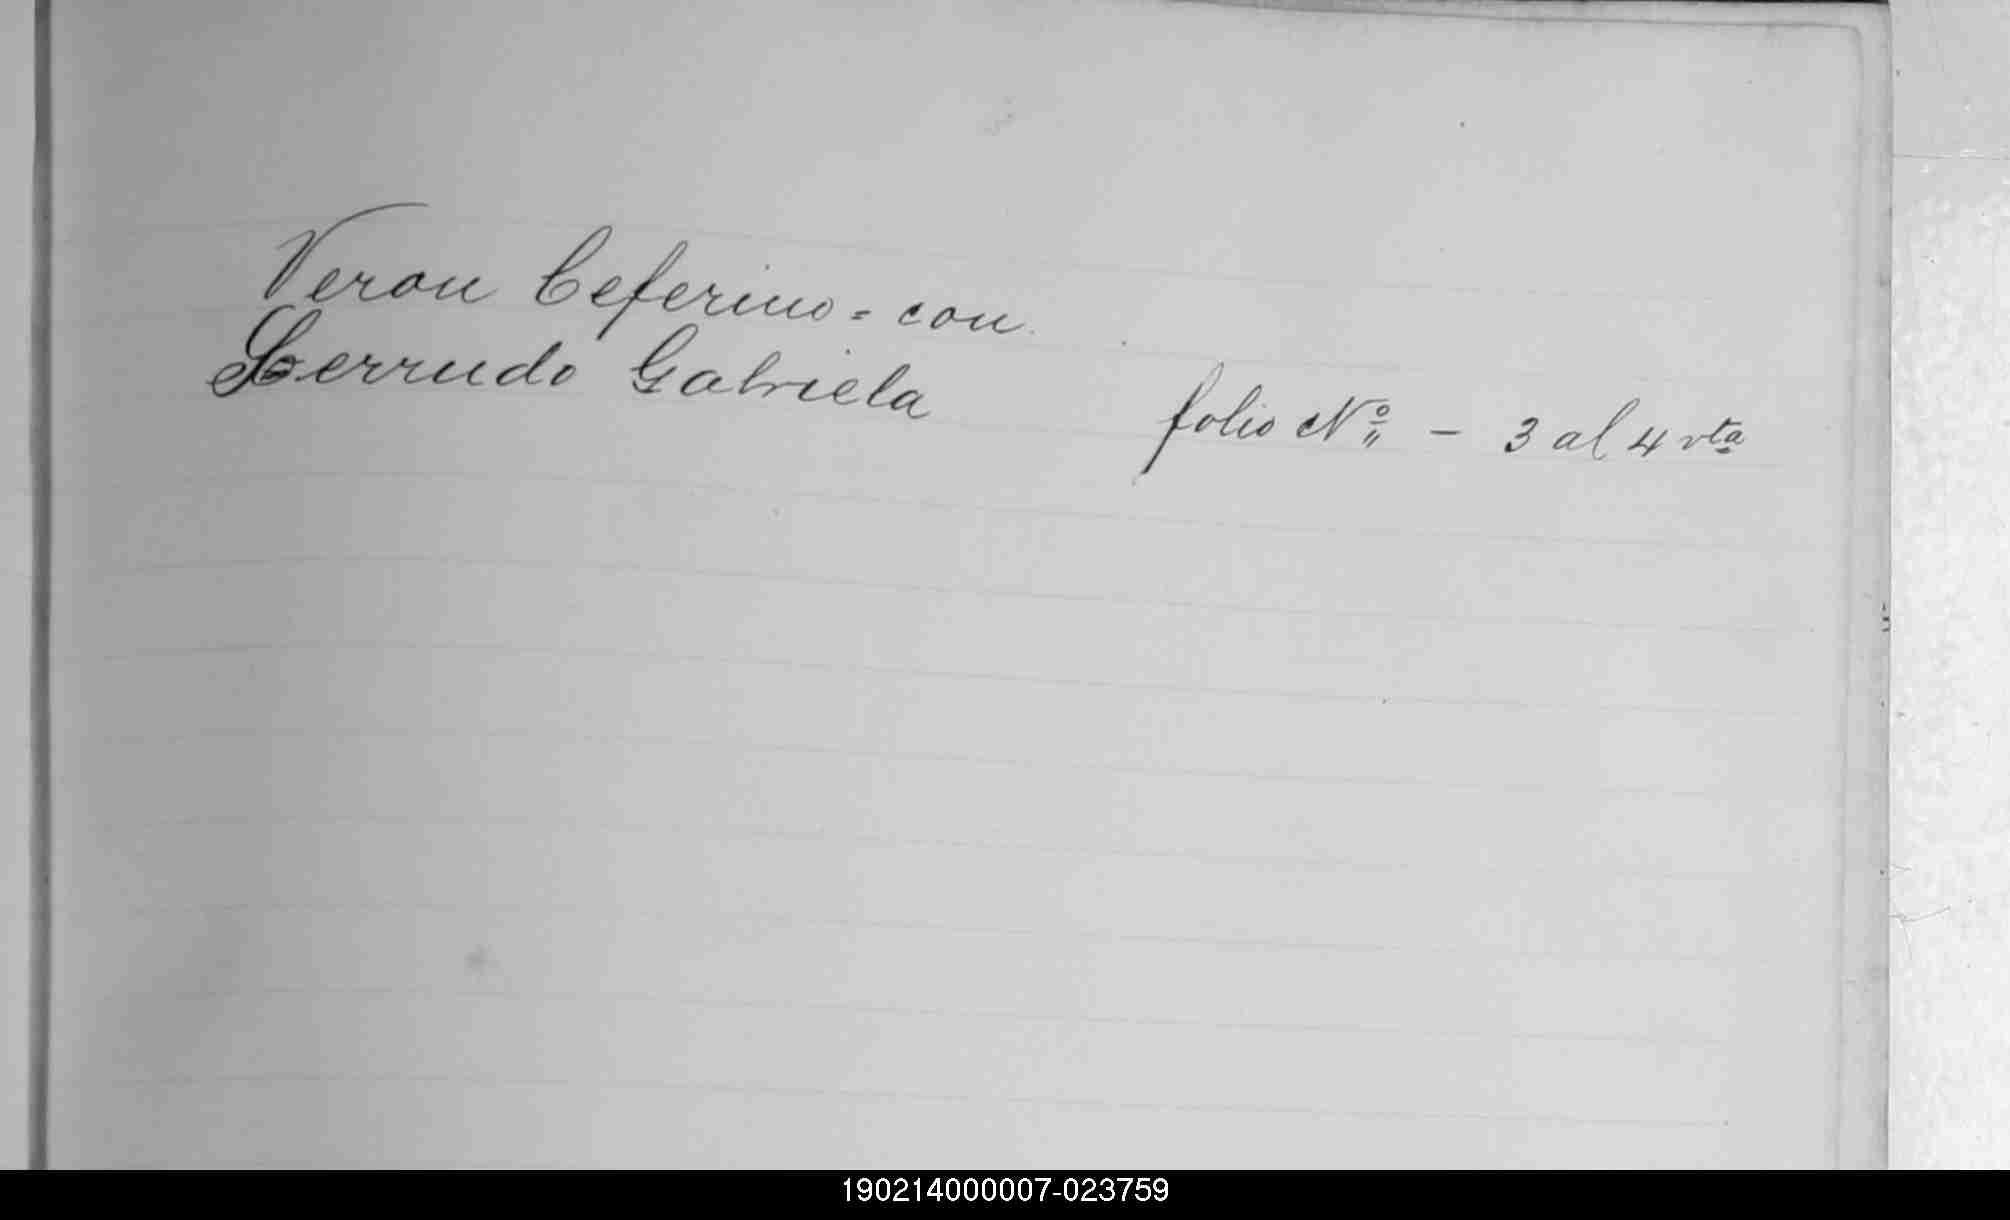 Veron Ceferino = con
Serrudo Gabriela
folio Nº - 3 al 4 vta
190214000007-023759